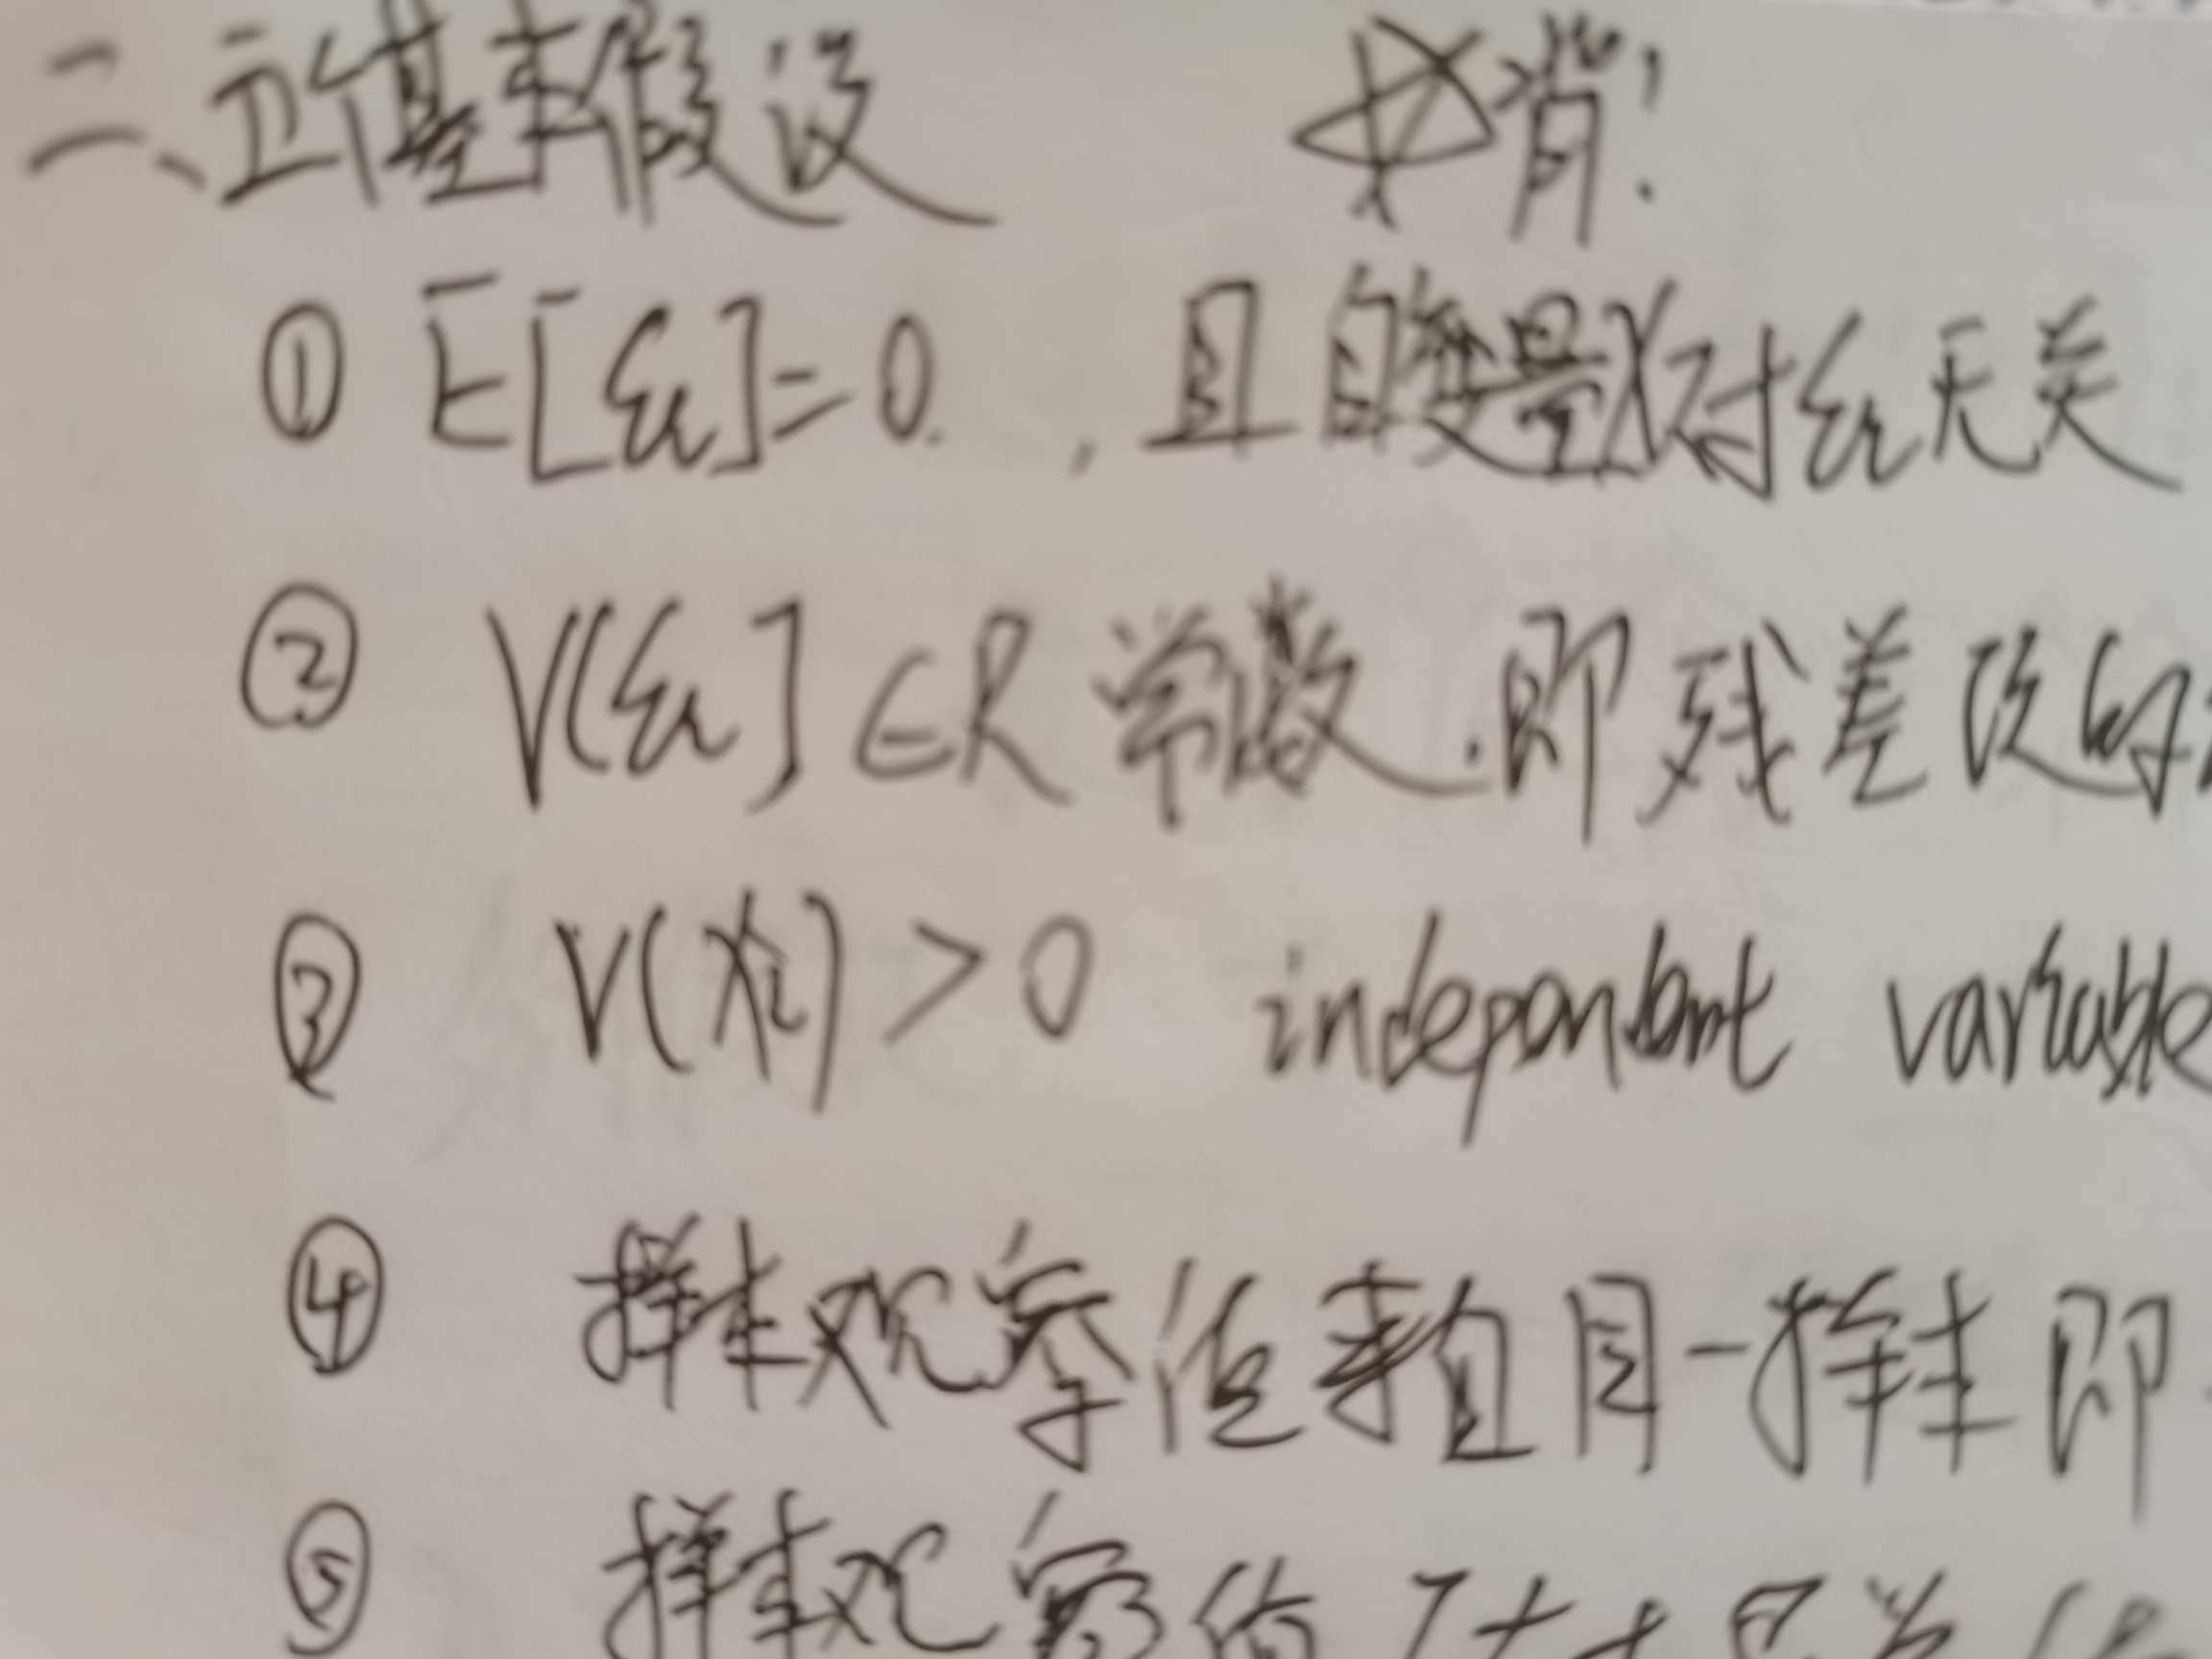 二、五个基本假设 必背!
① E[εi]=0. , 且自变量X对εi无关
② V[εi]∈R 常数.即残差项的
③ V(Xi)>0 indepondent variable
④ 样本观察值来自同一样本 即
⑤ 样本观察值